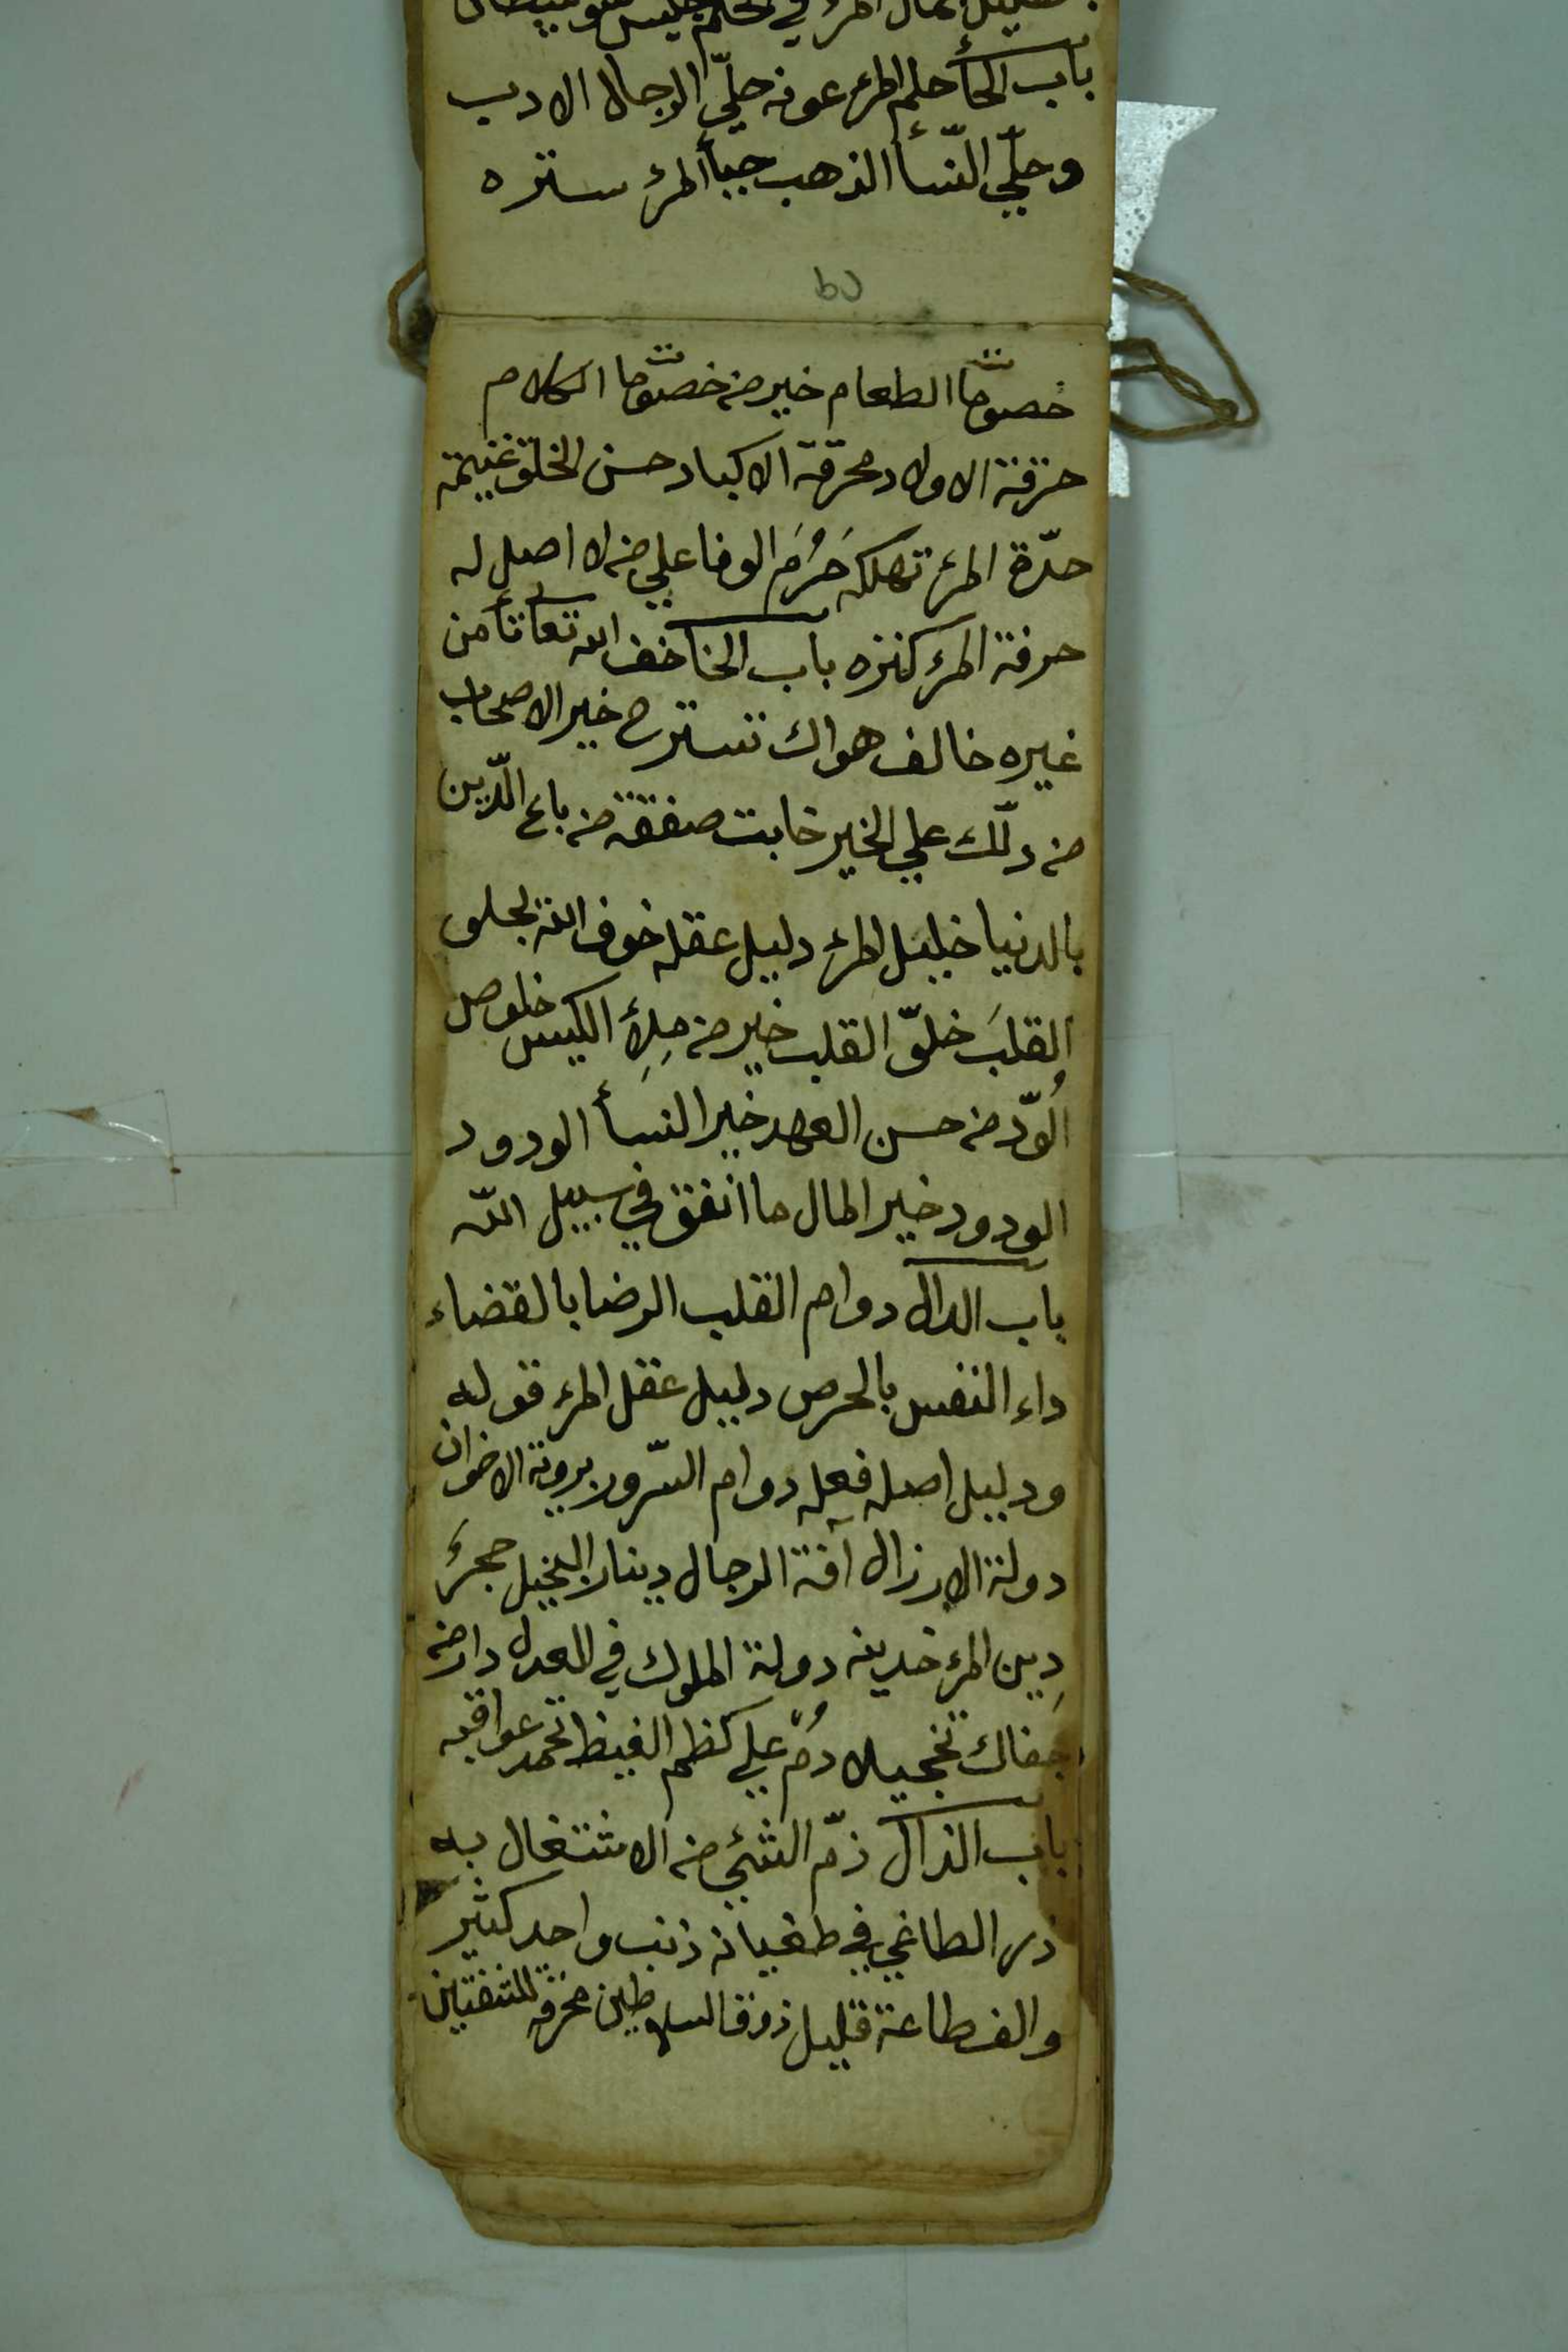 باب الحأ حلم المرء عونه حلّي الرجال الادب
وحلّي النّسأ الذهب حيأ المرء ستره
خصوصا الطعام خير من خصوصا الكلام
حرقة الاولاد محرقة الاكباد حسن الخلق غنيمة
حدّة المرء تهلكه حَرُمَ الوفا علي من لا اصل له
حرفة المرء كنزه باب الخأ خف الله تعا تأمن
غيره خالف هواك تسترح خير الاصحاب
من دلّك علي الخير خابت صفقة من باع الدّين
بالدنيا خليل المرء دليل عقله خوف الله يجلى
القلبَ خلوّ القلب خير من مِلأِ الكيس خلوص
الوُدّ من حسن العهد خير النسأ الودود
الودود خير المال ما انفق في سبيل اللّه
باب الدال دوام القلب الرضا بالقضاء
داء النفس بالحرص دليل عقل المرء قوله
ودليل اصله فعله دوام السّرور بروية الاخوان
دولة الارزال آفة الرجال دينار البخيل حجرٌ
دِين المرء خدينه دولة الملوك في العدل دار من
جفاك تخجيلا دُمْ علي كظم الغيظ تحمد عواقبه
باب الذال ذمّ الشئي من الاشتغال به
ذر الطاغي في طغيانه ذنب واحد كثير
والف طاعة قليل ذوق السلاطين محرقة للشفتين